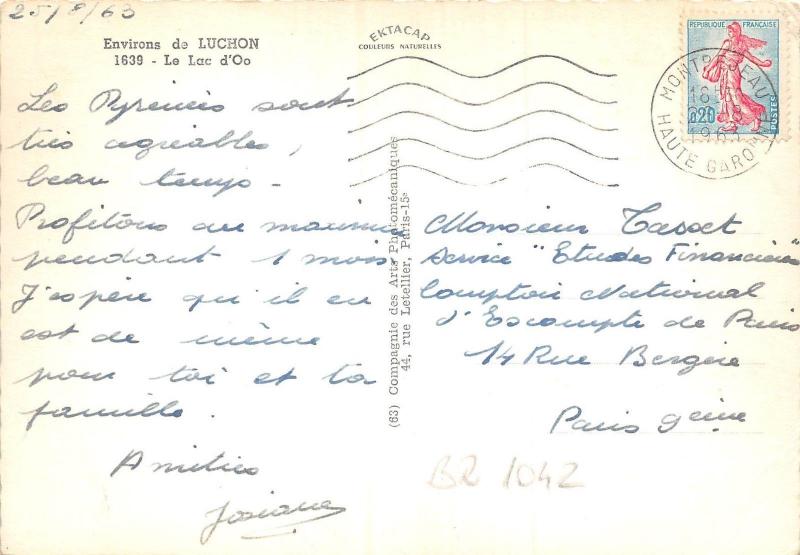 25/8/63
Environs de LUCHON
1639 - Le Lac d'Oo
EKTACAP
COULEURS NATURELLES
REPUBLIQUE FRANÇAISE
0,20
POSTES
MONTREJEAU
HAUTE GARONNE
Les Pyrénées sont
très agréables,
beau temps -
Profitons au maximum
pendant 1 mois.
J'espère qu'il en
est de même
pour toi et ta
famille.
Amitiés
Josiane
(63) Compagnie des Arts Photomécaniques
44, rue Letellier, Paris-15e
Monsieur Tasset
Service "Etudes Financières"
Comptoir National
d'Escompte de Paris
14 Rue Bergère
Paris 9eme
BR 1042